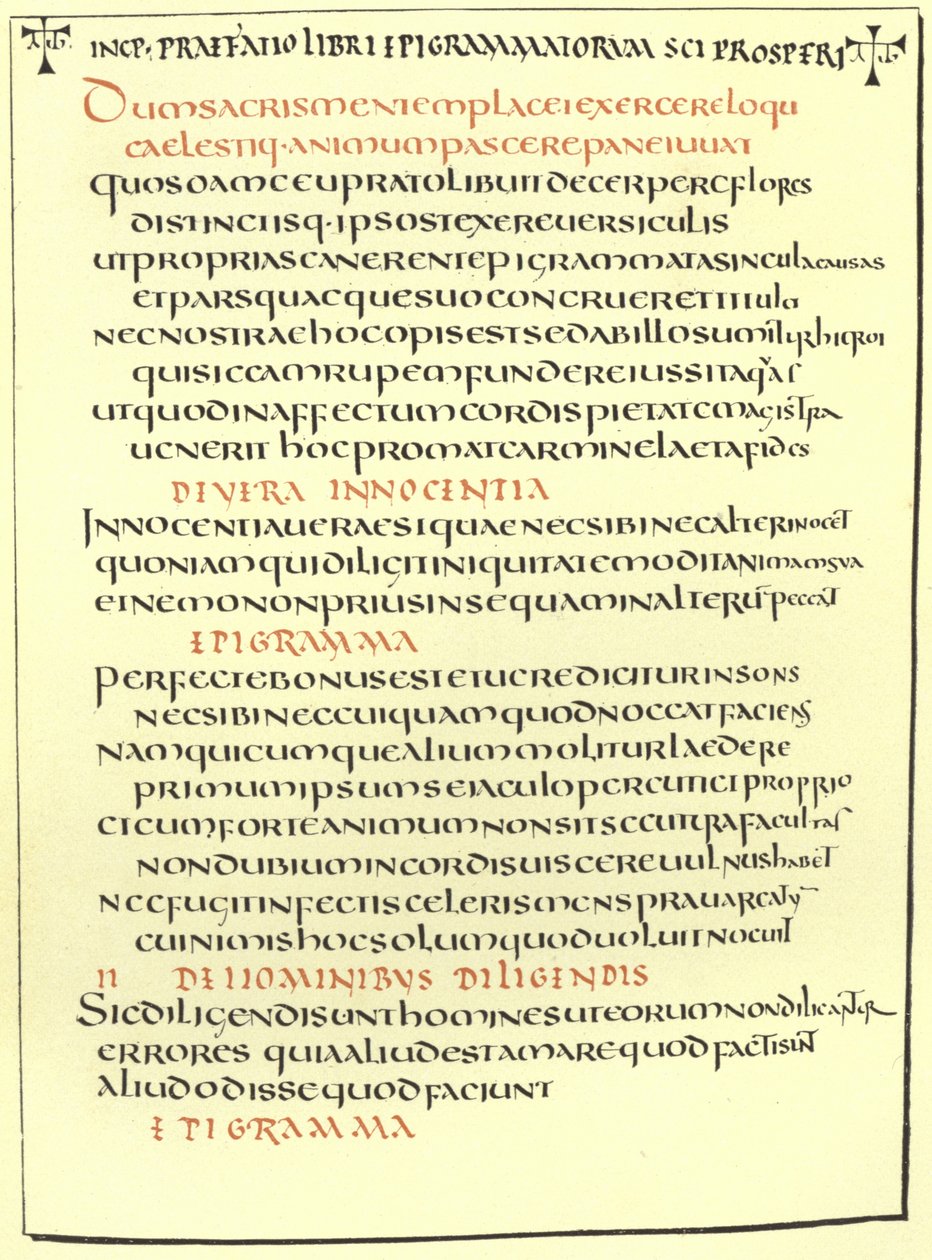 INCP· PRAEFATIO LIBRI EPIGRAMMATORVM SCI PROSPERI
DUMSACRISMENTEMPLACETEXERCERELOQU
CAELESTIQ·ANIMUMPASCEREPANEIUUAT
QUOSDAMCEUPRATOLIBUITDECERPEREFLORES
DISTINCTISQ·IPSOSTEXEREUERSICULIS
UTPROPRIASCANERENTEPIGRAMMATASINGULACAUSAS
ETPARSQUAEQUESUOCONGRUERETTITULO
NECNOSTRAEHOCOPISESTSEDABILLOSUMIT
QUISICCAMRUPEMFUNDEREIUSSITAQAS
UTQUODINAFFECTUMCORDISPIETATEMAGISTRA
UENERIT HOCPROMATCARMINELAETAFIDES
DE VERA INNOCENTIA
INNOCENTIAUERAESIQUAENECSIBINECALTERINOCET
QUONIAMQUIDILIGITINIQUITATEMODITANIMAMSVA
ETNEMONONPRIUSINSEQUAMINALTERUPECCAT
EPIGRAMMA
PERFECTEBONUSESTETUEREDICITURINSONS
NECSIBINECCUIQUAMQUODNOCEATFACIENS
NAMQUICUMQUEALIUMMOLITURLAEDERE
PRIMUMIPSUMSEIACULOPERCUTIETPROPRIO
ETCUMFORTEANIMUMNONSITSECUTURAFACULTAS
NONDUBIUMINCORDISUISCEREUULNUSHABET
NECFUGITINFECTISCELERISMENSPRAUAREATU
CUINIMISHOCSOLUMQUODUOLUITNOCUIT
II DE HOMINIBVS DILIGENDIS
SICDILIGENDISUNTHOMINESUTEORUMNONDILIGANTR
ERRORES QUIAALIUDESTAMAREQUODFACTISUNT
ALIUDODISSEQUODFACIUNT
EPIGRAMMA